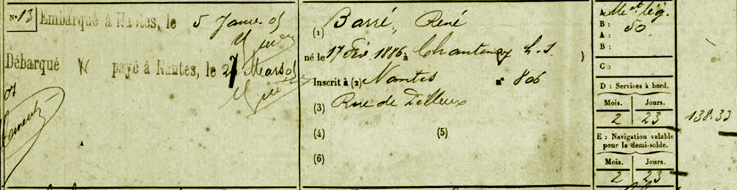 N° 13 Embarqué à Nantes, le 5 Janv. 05
Débarqué & payé à Nantes, le 27 Mars 05
(1) Barré, René
né le 17 Fév 1886 à Chantenay L. I.
Inscrit à (2) Nantes n° 806
(3) Rue de
(4) (5)
(6)
A:
B: 50
A:
B:
C:
D : Services à bord.
Mois. Jours.
2 23
138.33
E : Navigation valable
pour la demi-solde.
Mois. Jours.
2 23